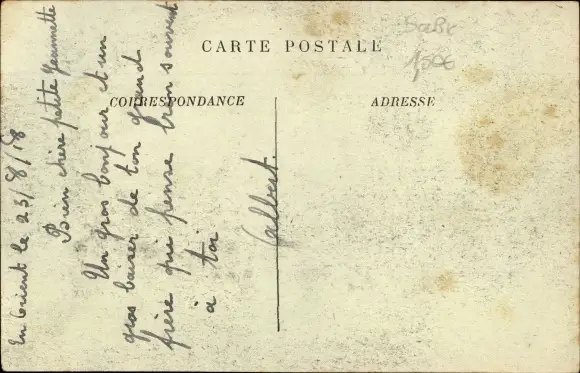 CARTE POSTALE
CORRESPONDANCE
ADRESSE
En Orient le 23/8/18
Bien chère petite Jeannette
Un gros bonjour et un
gros baiser de ton grand
frère qui pense bien souvent
à toi
Albert.
1,50€